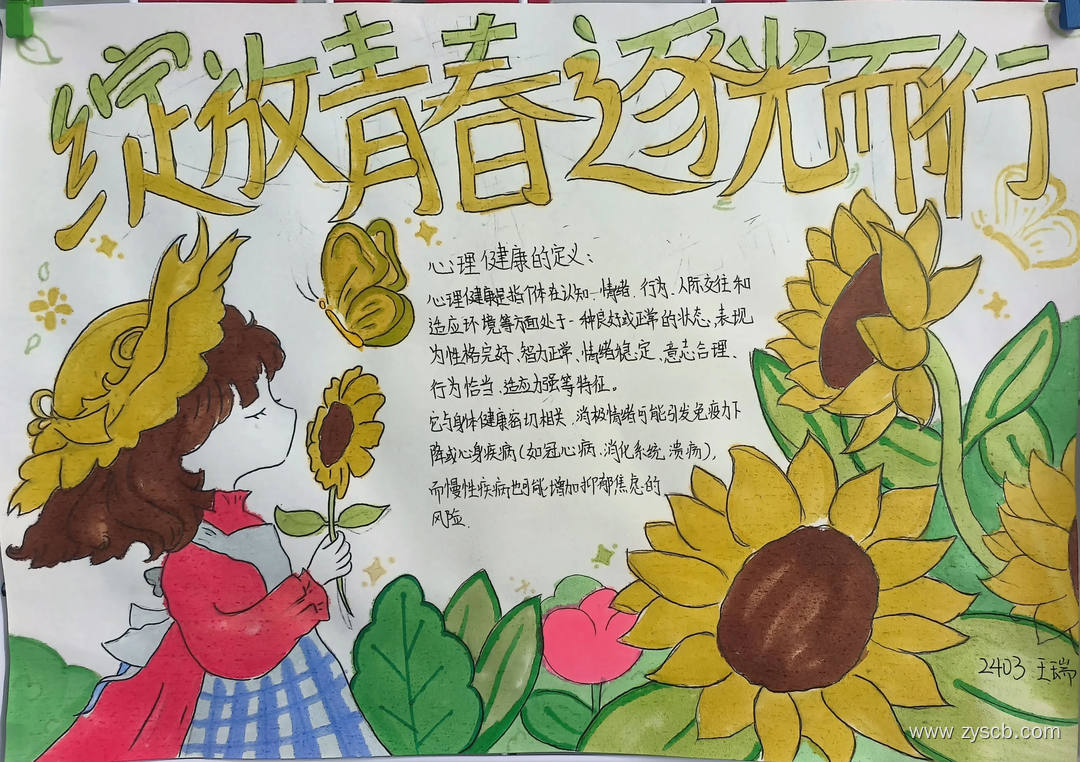 绽放青春逐光而行
心理健康的定义：
心理健康是指个体在认知、情绪、行为、人际交往和
适应环境等方面处于一种良好或正常的状态，表现
为性格完好、智力正常、情绪稳定、意志合理、
行为恰当、适应力强等特征。
它与身体健康密切相关，消极情绪可能引发免疫力下
降或心身疾病(如冠心病、消化系统溃疡)，
而慢性疾病也可能增加抑郁焦虑的
风险.
2403 王瑞
www.zyscb.com